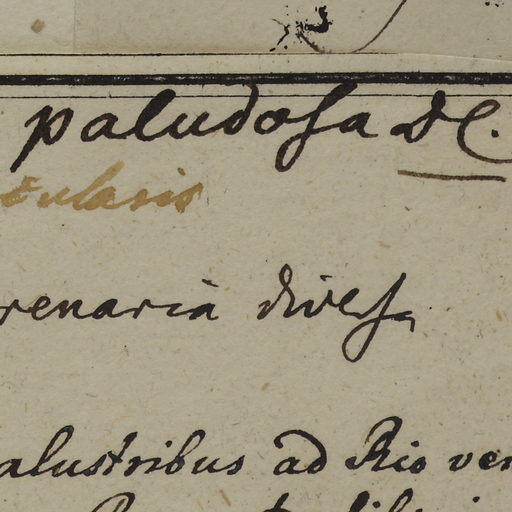 paludosa DC.
tularis
renaria divesa
alustribus ad Rio ven